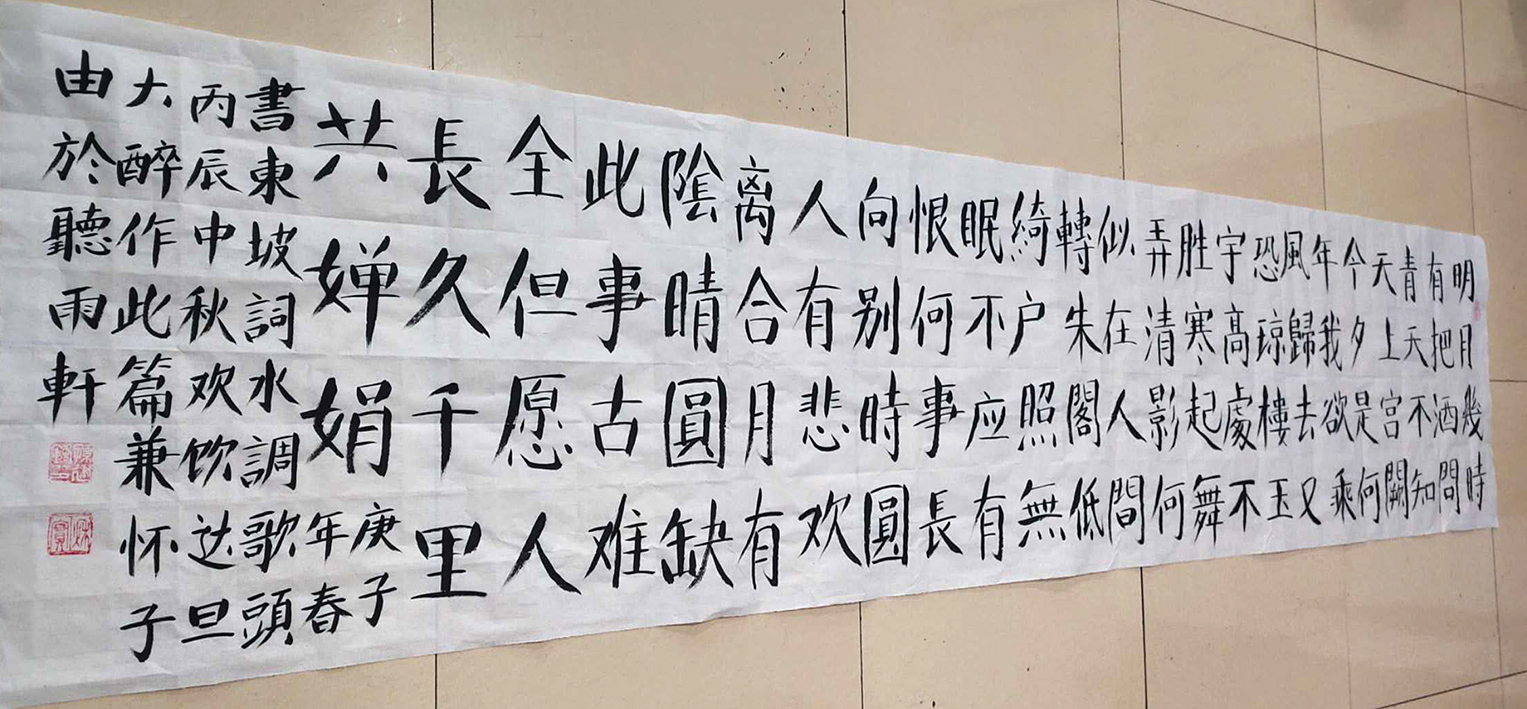 明月幾時
有把酒問
青天不知
天上宫闕
今夕是何
年我欲乘
風歸去又
恐琼樓玉
宇髙處不
胜寒起舞
弄清影何
似在人間
轉朱閣低
綺户照無
眠不应有
恨何事長
向别時圓
人有悲欢
离合月有
陰晴圓缺
此事古难
全但愿人
長久千里
共婵娟
庚子
年春
書東坡詞水調歌頭
丙辰中秋欢饮达旦
大醉作此篇兼怀子
由於聽雨軒